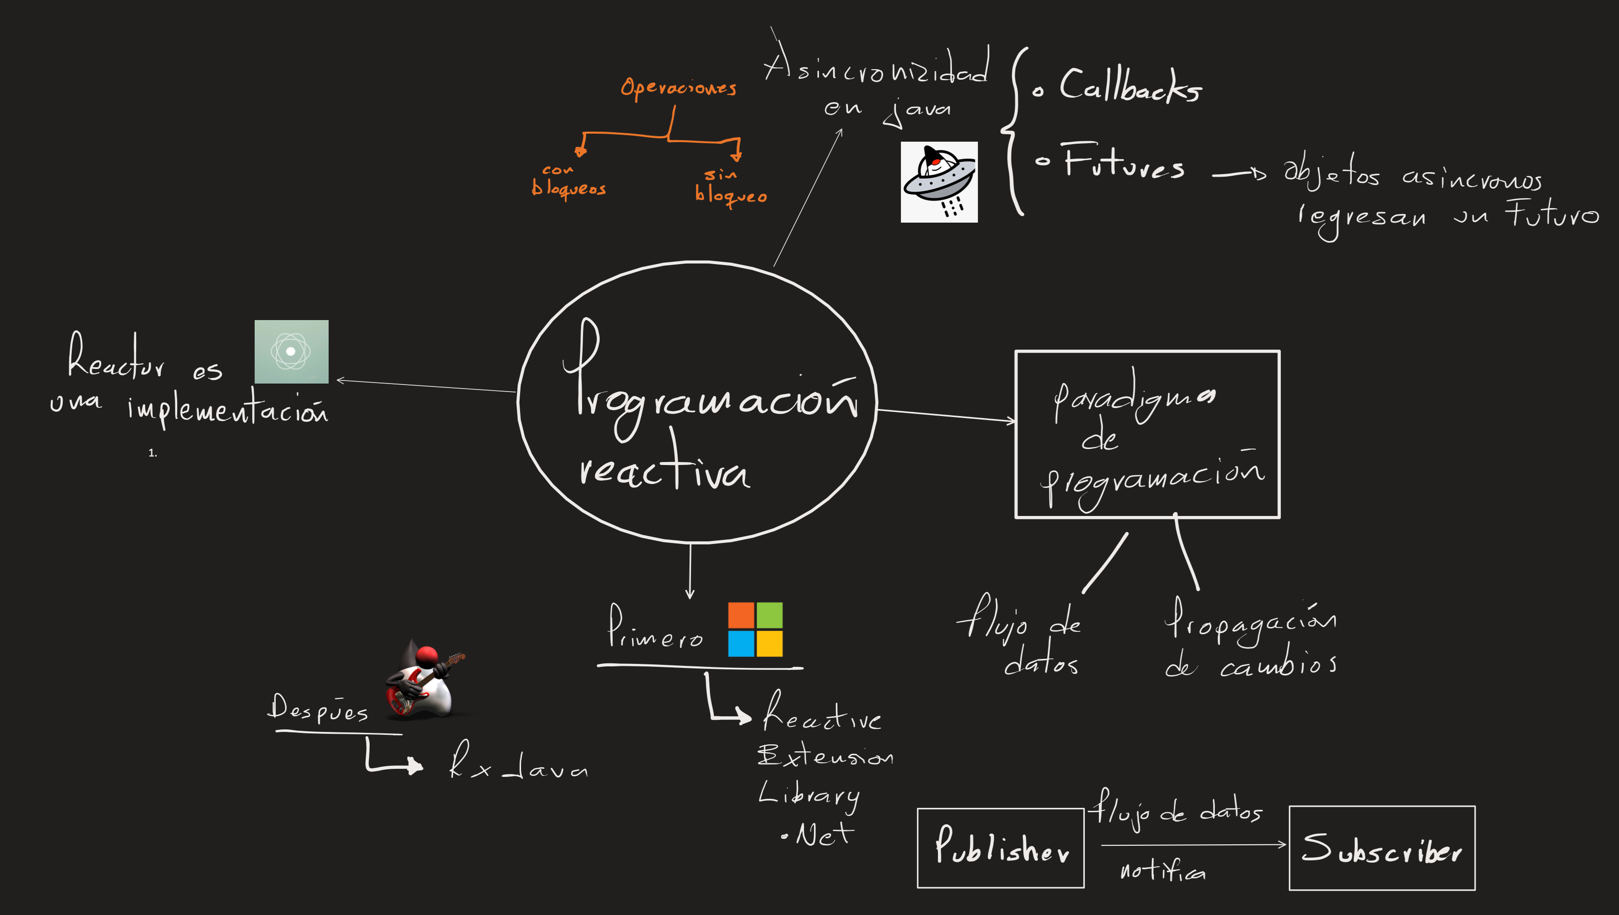 Operaciones
con
bloqueos
sin
bloqueo
Asincronizidad
en java
• Callbacks
• Futures
objetos asincronos
regresan un Futuro
Reactor es
una implementación
1.
Programación
reactiva
paradigma
de
programación
flujo de
datos
Propagación
de cambios
Primero
Reactive
Extension
Library
.Net
Despúes
Rx Java
Publisher
flujo de datos
notifica
Subscriber